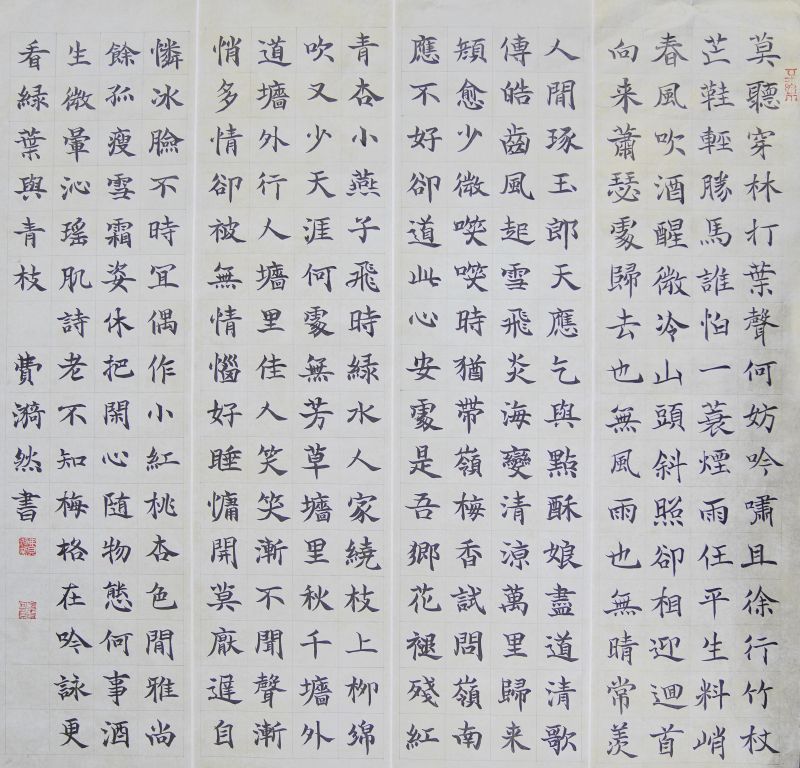 莫聽穿林打葉聲何妨吟嘯且徐行竹杖
芒鞋輕勝馬誰怕一蓑煙雨任平生料峭
春風吹酒醒微冷山頭斜照卻相迎迴首
向来蕭瑟處歸去也無風雨也無晴常羨
人間琢玉郎天應乞與點酥娘盡道清歌
傳皓齒風起雪飛炎海變清涼萬里歸来
頰愈少微㗛㗛時猶帶嶺梅香試問嶺南
應不好卻道此心安處是吾鄉花褪殘紅
青杏小燕子飛時綠水人家繞枝上柳綿
吹又少天涯何處無芳草墻里秋千墻外
道墻外行人墻里佳人笑笑漸不聞聲漸
悄多情卻被無情惱好睡慵開莫厭遲自
憐冰臉不時宜偶作小紅桃杏色閒雅尚
餘孤瘦雪霜姿休把閑心随物態何事酒
生微暈沁瑤肌詩老不知梅格在吟詠更
看綠葉與青枝 費漪然書